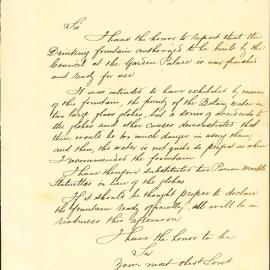 Sir
I have the honor to report that the
Drinking fountain authorized to be built by the
Council at the Garden Palace is now finished
and ready for use
It was intended to have exhibited by means
of this fountain, the purity of the Botany Water in
two large glass globes, but a series of accidents to
the globes and other causes demonstrated that
there would be too much danger in using them,
and then, the water is not quite so perfect as when
I recommended the fountain
I have therefore substituted two Parian Marble
Statuettes in lieu of the globes
If it should be thought proper to declare
the fountain ready officially, all will be in
readiness this afternoon
I have the honor to be
Sir
Your most obdt Servt